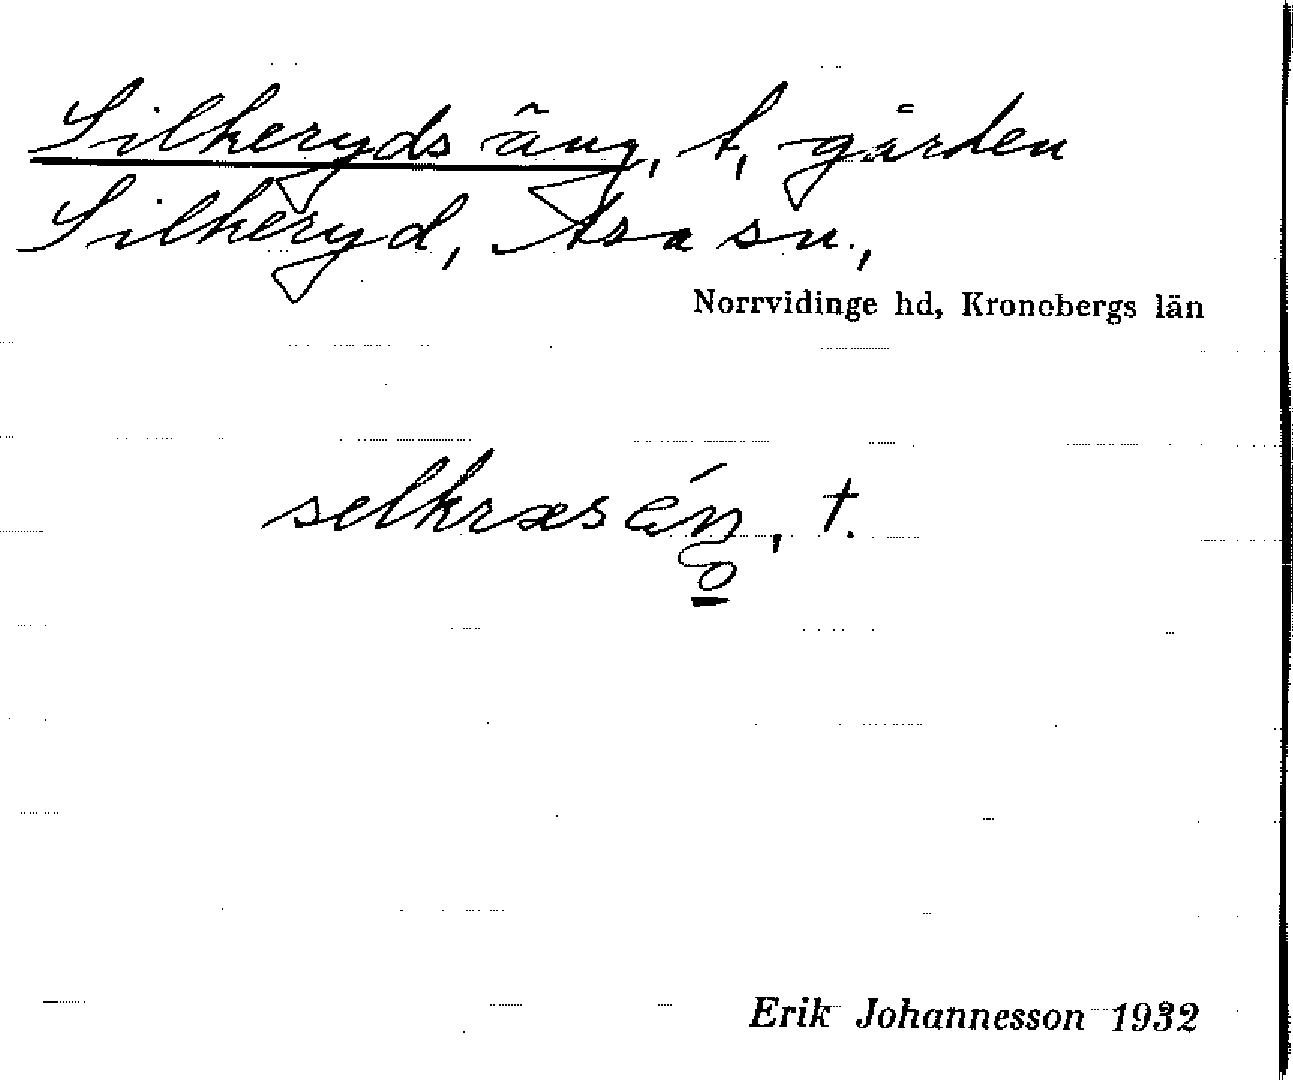 Silkeryds äng, t, gården
Silkeryd, Asa sn.,
Norrvidinge hd, Kronobergs län
selkræsæ̀ŋ, t.
Erik Johannesson 1932